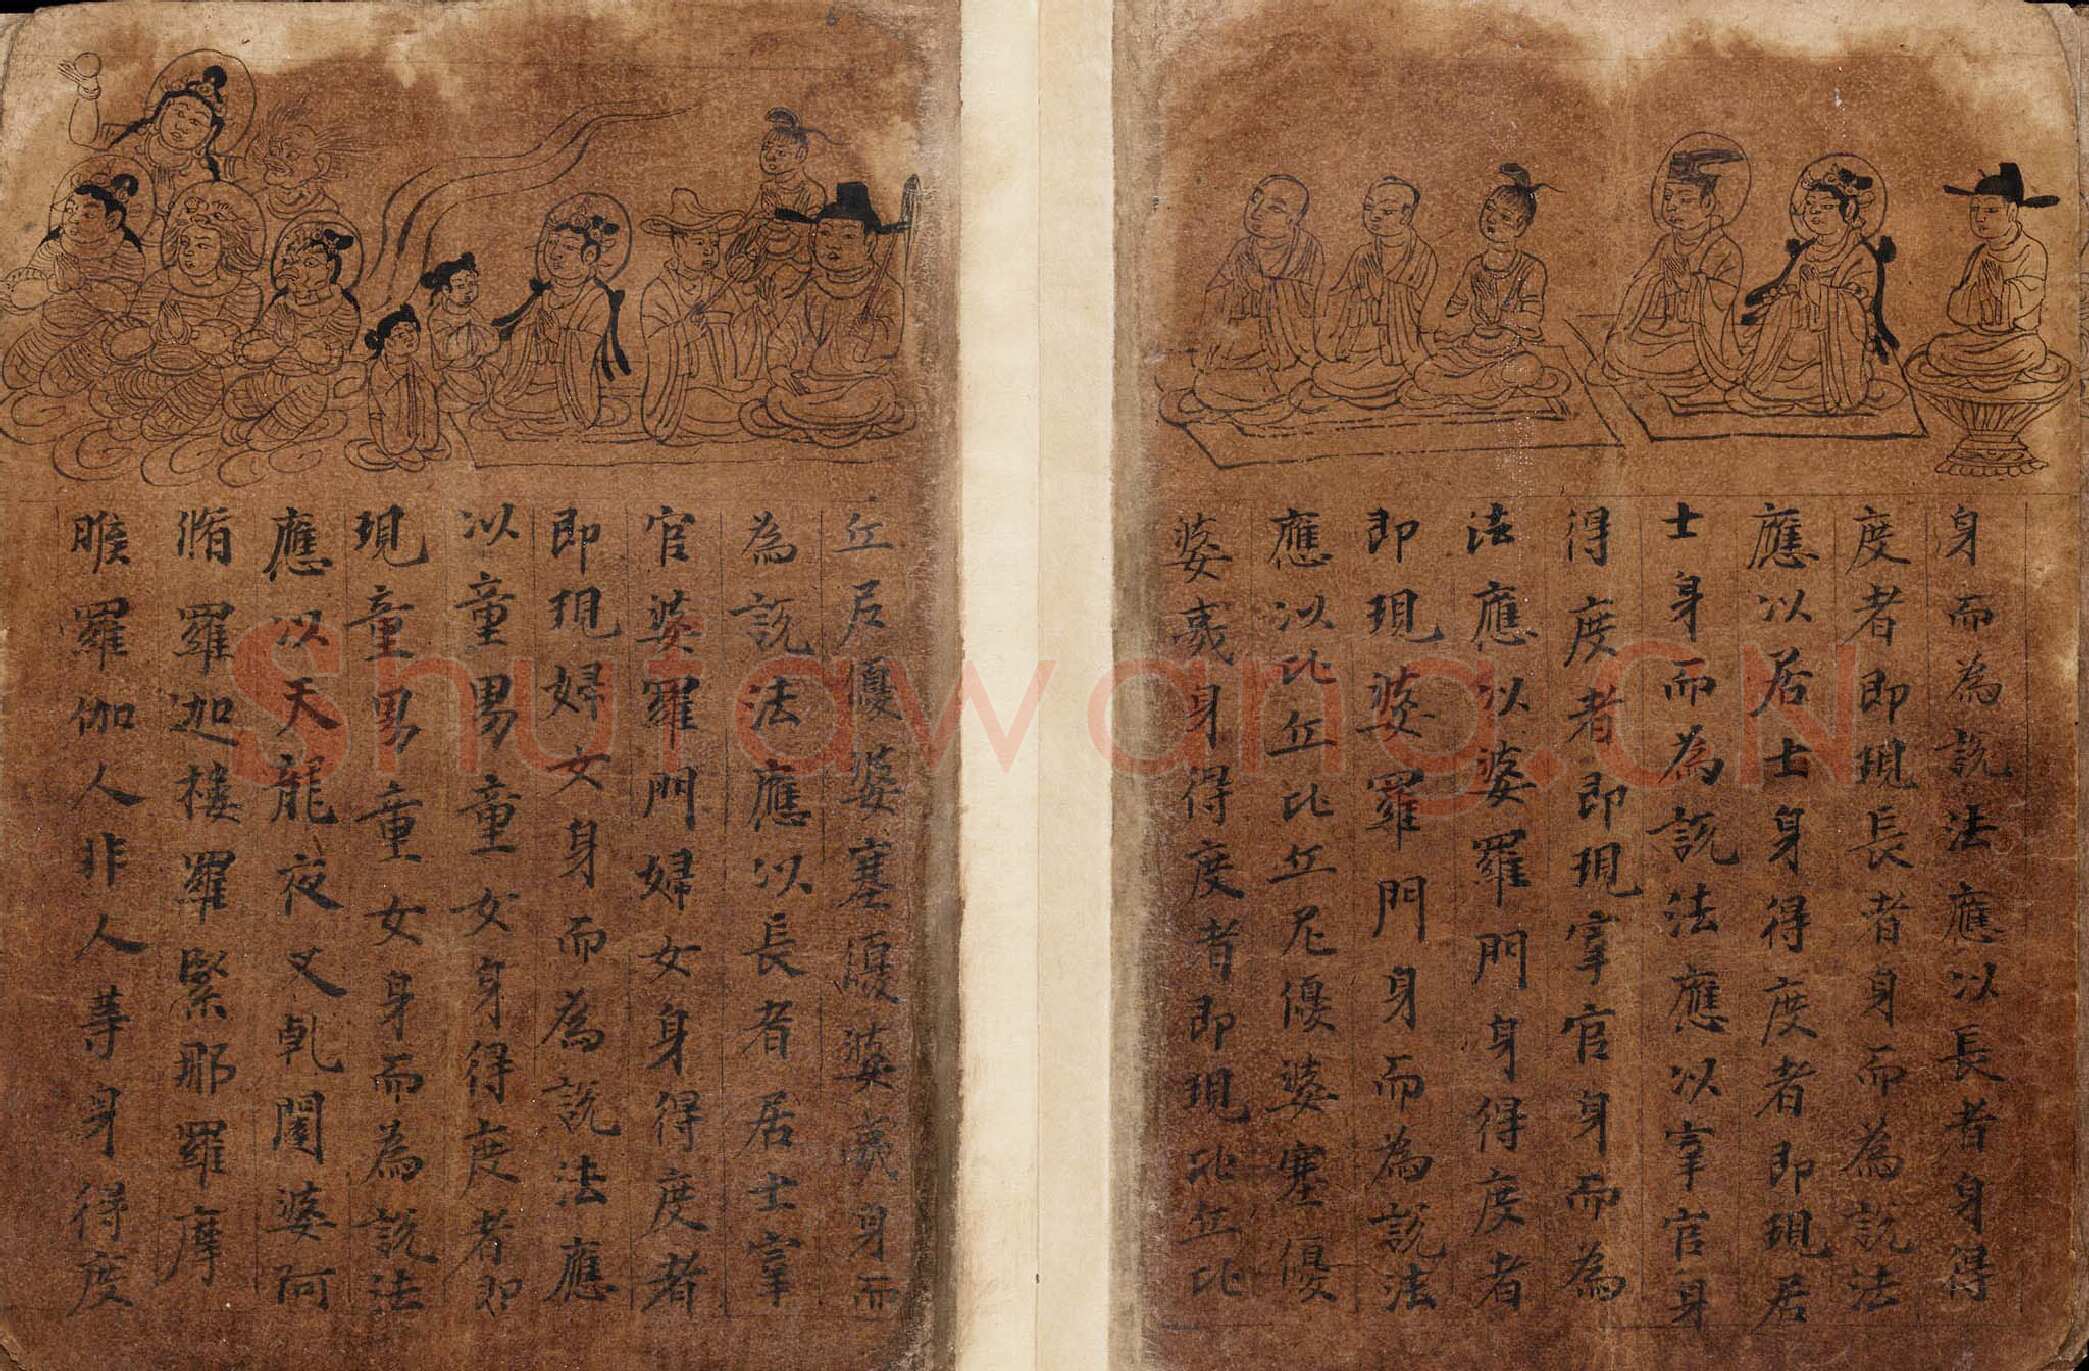 身而為説法應以長者身得
度者即現長者身而為説法
應以居士身得度者即現居
士身而為説法應以宰官身
得度者即現宰官身而為
法應以婆羅門身得度者
即現婆羅門身而為説法
應以比丘比丘尼優婆塞優
婆夷身得度者即現比丘比
丘尼優婆塞優婆夷身而
為説法應以長者居士宰
官婆羅門婦女身得度者
即現婦女身而為説法應
以童男童女身得度者即
現童男童女身而為説法
應以天龍夜叉乹闥婆阿
脩羅迦樓羅緊那羅摩
睺羅伽人非人等身得度
Shufawang.CN